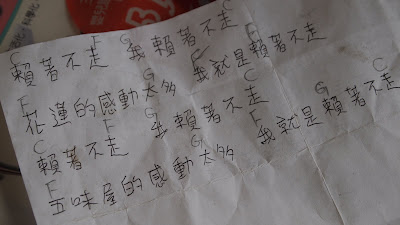 C F G
賴著不走 我賴著不走
F G F G C
花蓮的感動太多 我就是賴著不走
C F G C
賴著不走 我賴著不走
F G F G C
五味屋的感動太多 我就是賴著不走